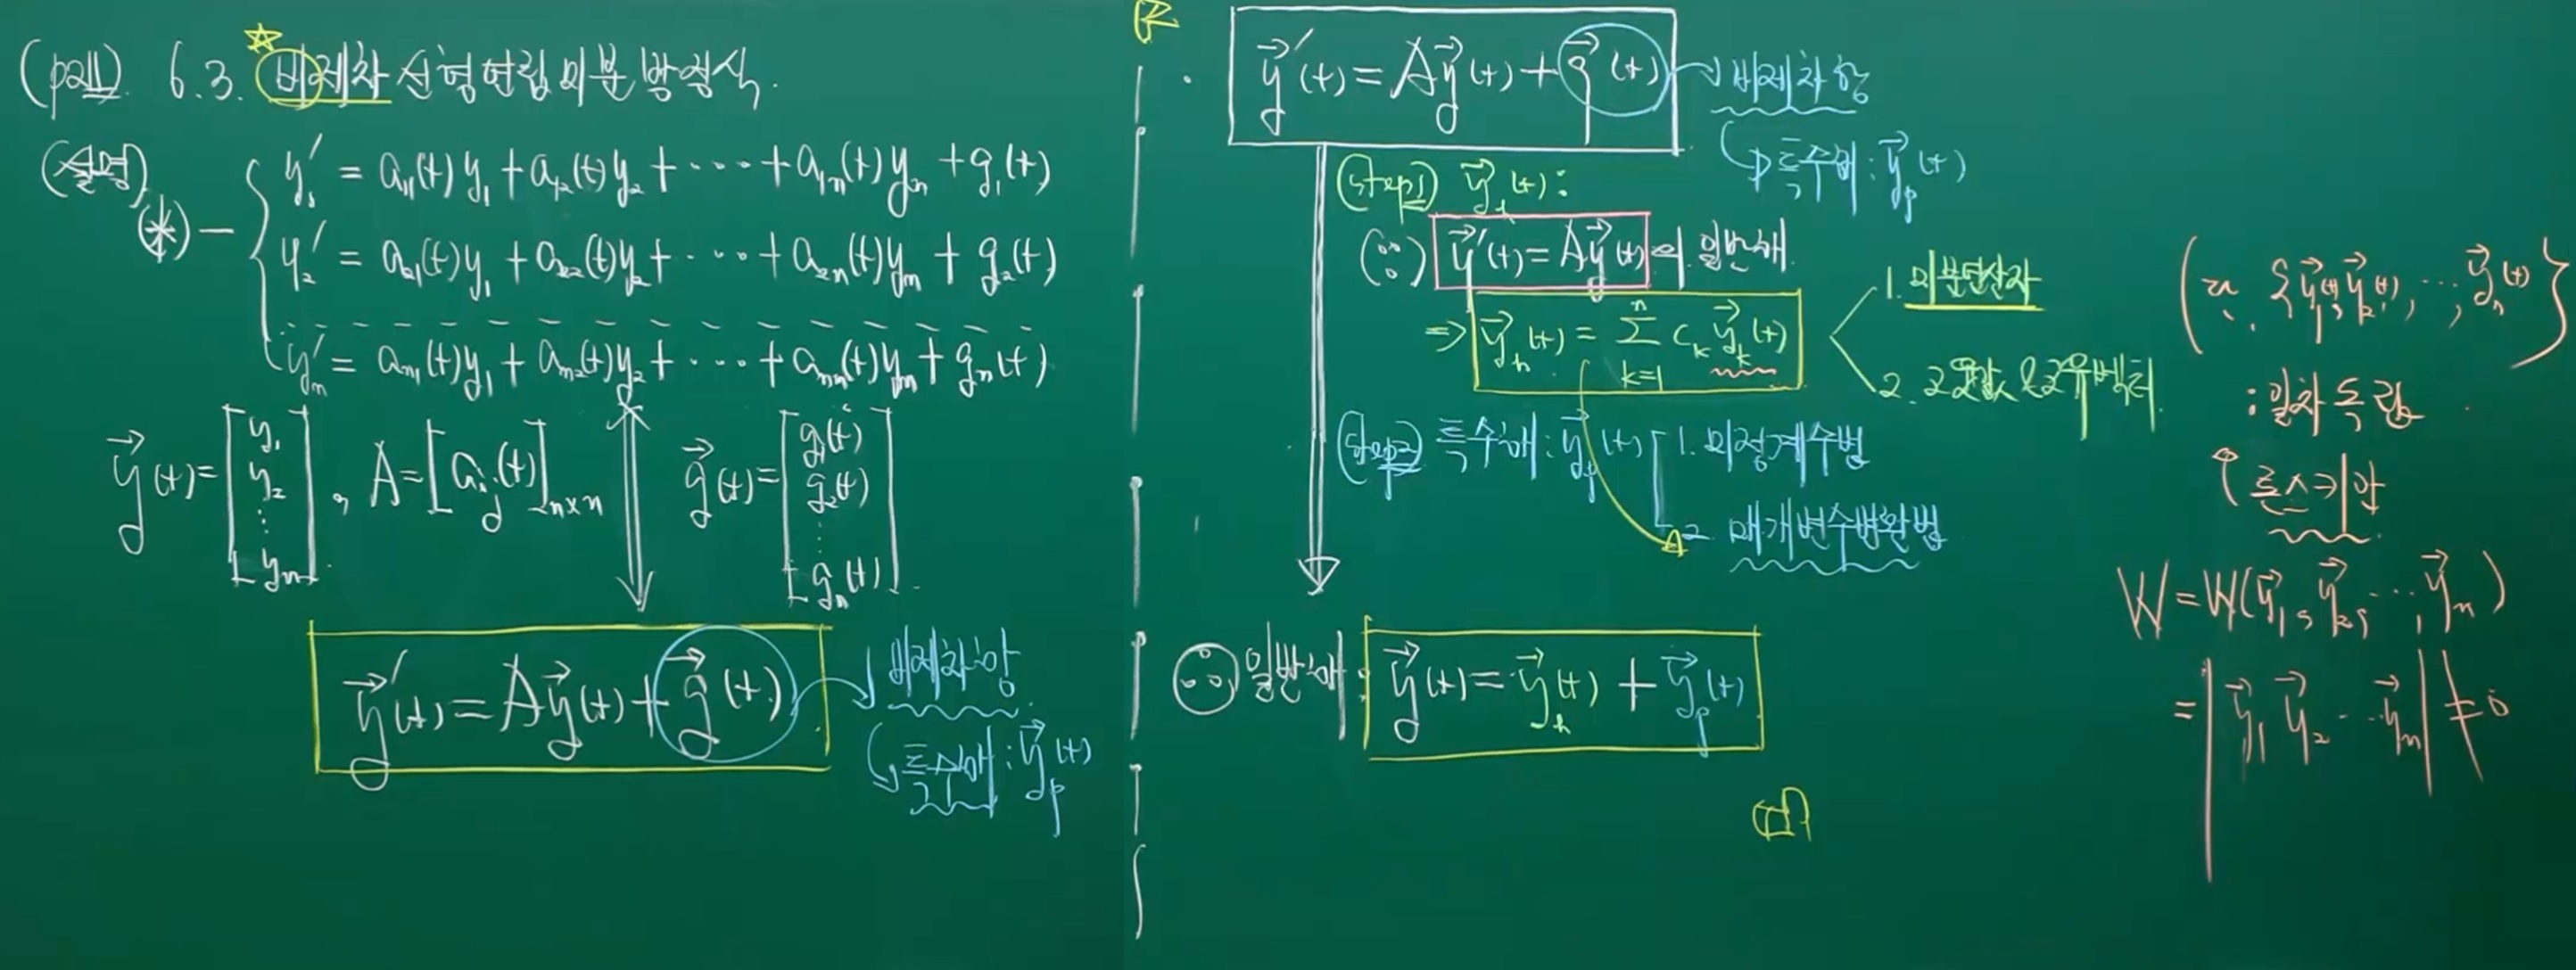 (p211) 6.3. 비제차 선형연립미분방정식.
(설명)
(*) - y₁′ = a₁₁(t)y₁ + a₁₂(t)y₂ + ⋯ + a₁ₙ(t)yₙ + g₁(t)
y₂′ = a₂₁(t)y₁ + a₂₂(t)y₂ + ⋯ + a₂ₙ(t)yₙ + g₂(t)
yₙ′ = aₙ₁(t)y₁ + aₙ₂(t)y₂ + ⋯ + aₙₙ(t)yₙ + gₙ(t)
y⃗(t) = [y₁ y₂ ⋮ yₙ], A = [aᵢⱼ(t)]ₙₓₙ g⃗(t) = [g₁(t) g₂(t) ⋮ gₙ(t)].
y⃗′(t) = Ay⃗(t) + g⃗(t)
비제차항
특수해: y⃗ₚ(t)
y⃗′(t) = Ay⃗(t) + g⃗(t) 비제차항
특수해: y⃗ₚ(t)
(step1) y⃗ₕ(t):
(∵) y⃗′(t) = Ay⃗(t)의 일반해.
⇒ y⃗ₕ(t) = Σₖ₌₁ⁿ cₖ y⃗ₖ(t)
1. 미분연산자
2. 고유값 & 고유벡터
(step2) 특수해: y⃗ₚ(t) 1. 미정계수법
2. 매개변수변환법
∴ 일반해: y⃗(t) = y⃗ₕ(t) + y⃗ₚ(t)
{y⃗₁(t), y⃗₂(t), ⋯, y⃗ₙ(t)}
: 일차독립
론스키안
W = W(y⃗₁, y⃗₂, ⋯, y⃗ₙ)
= |y⃗₁ y⃗₂ ⋯ y⃗ₙ| ≠ 0